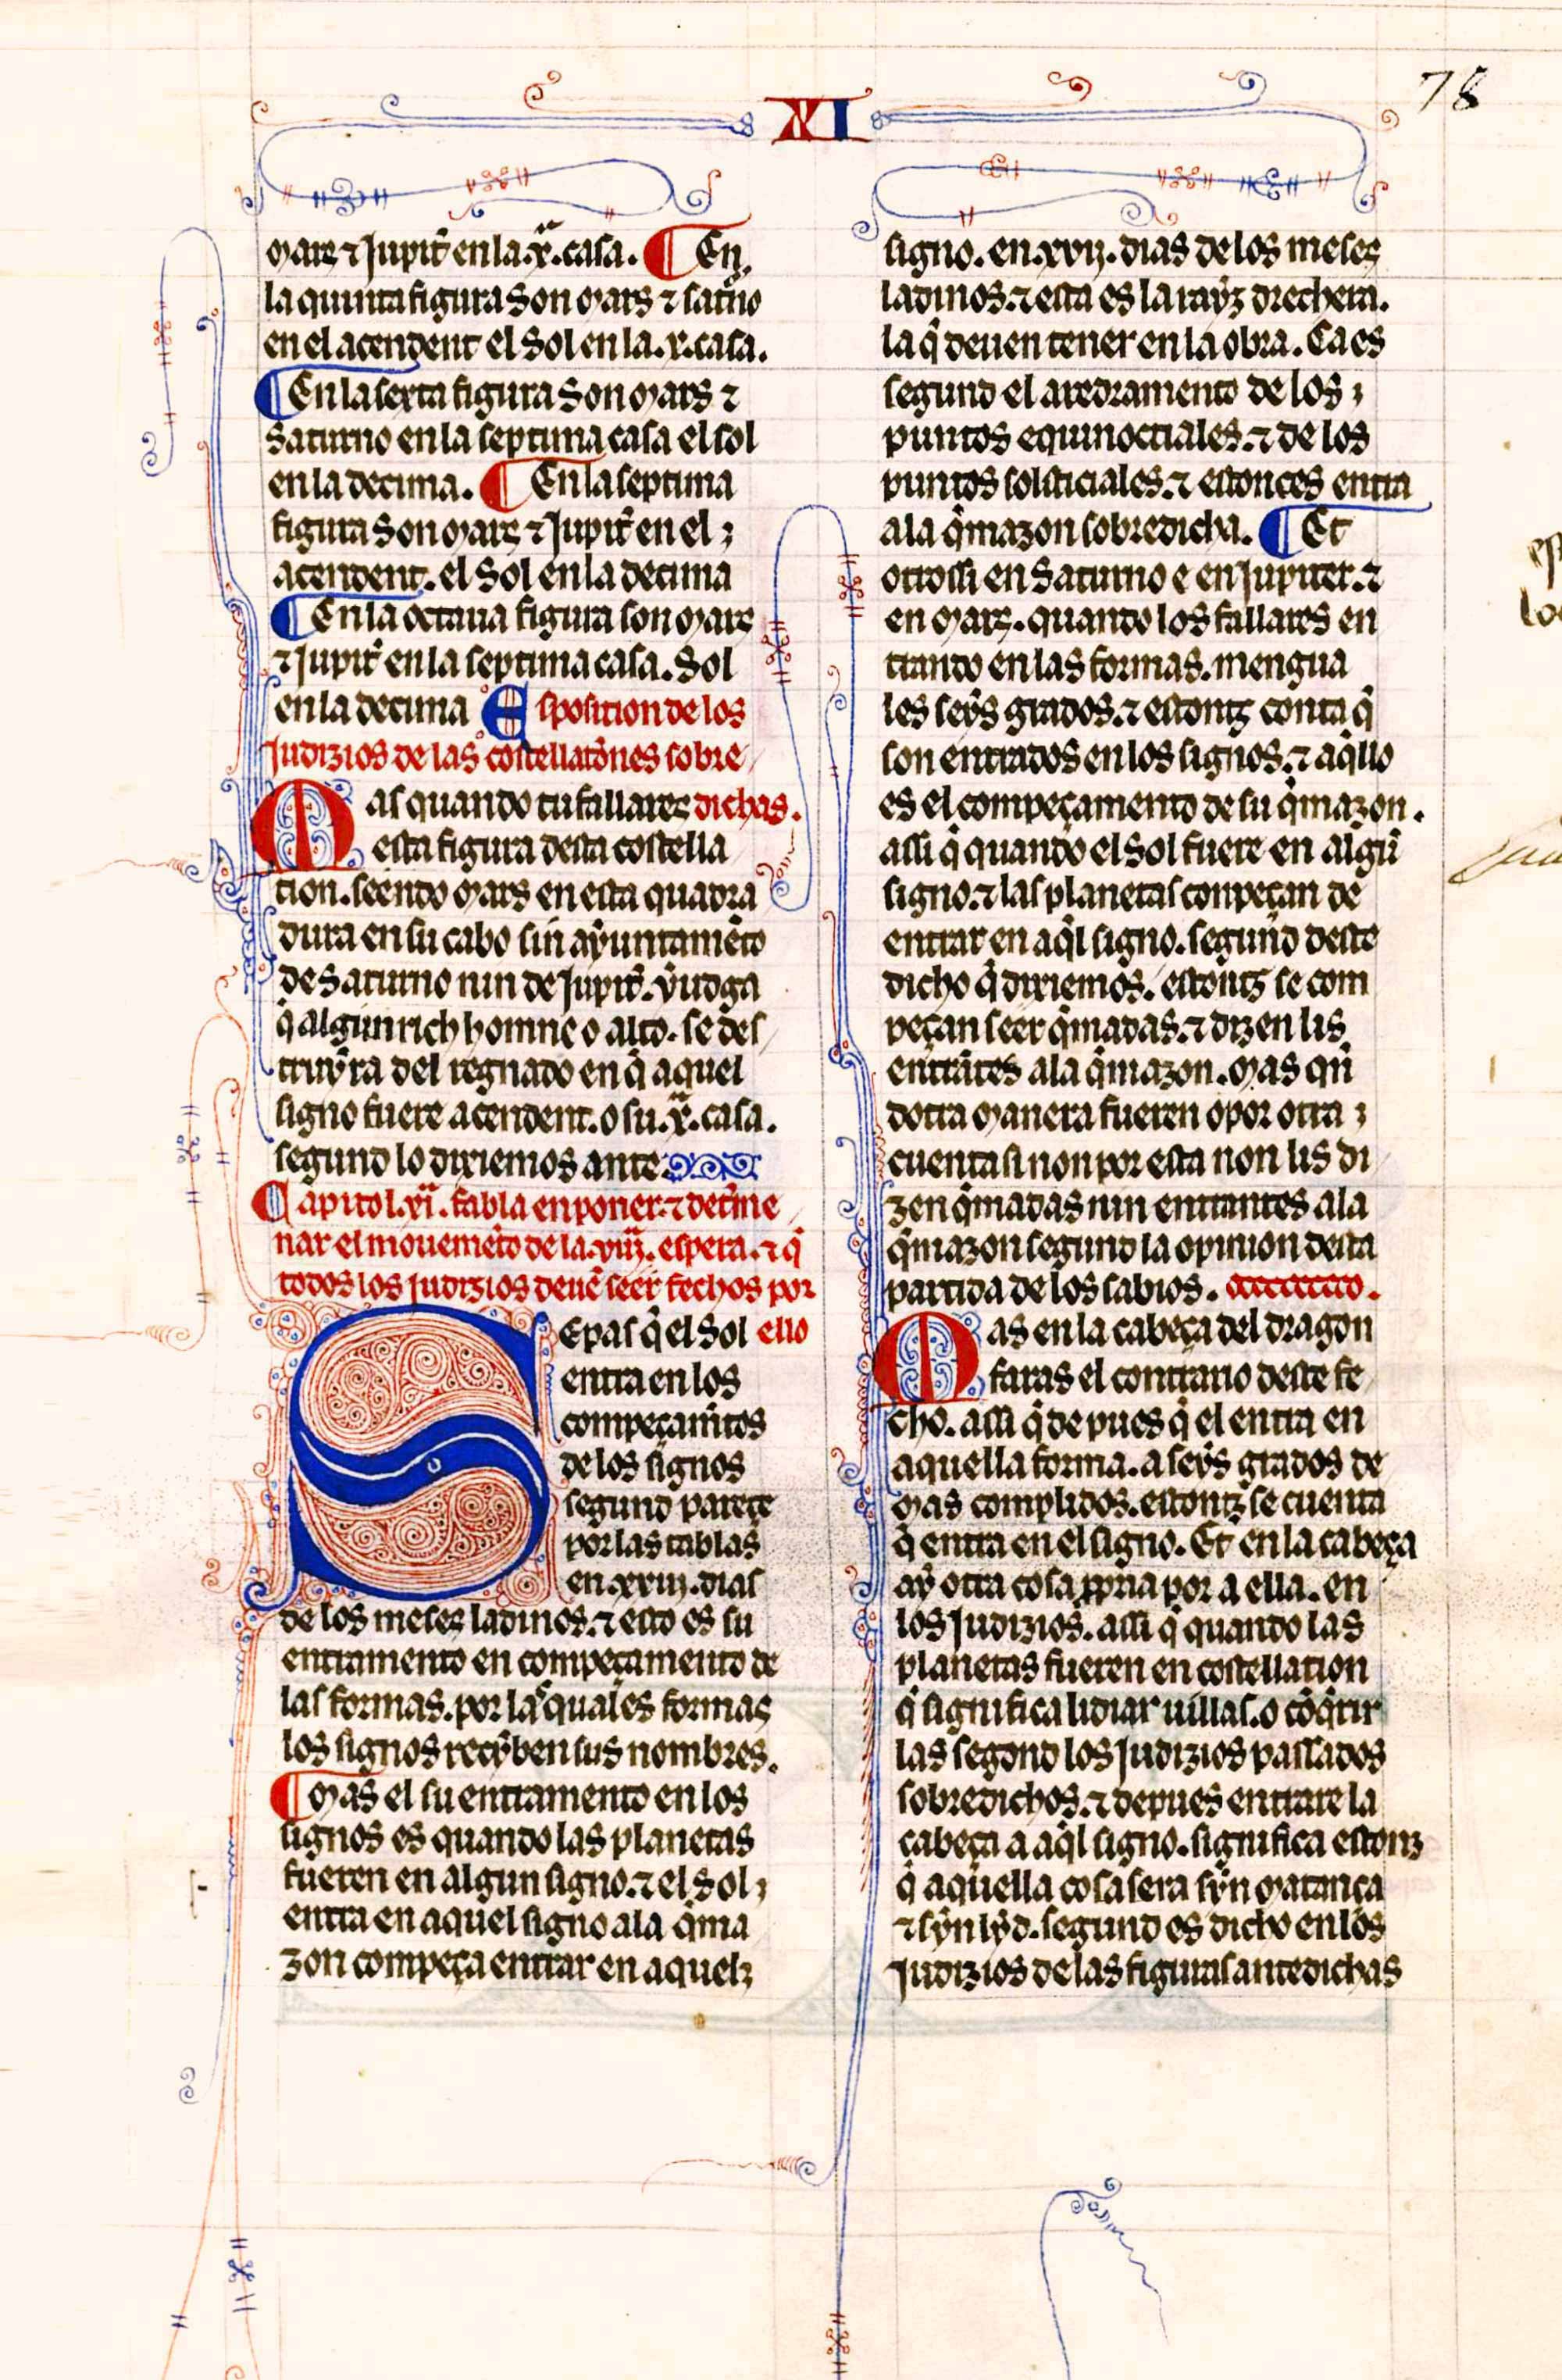 XI
78
Mars ⁊ Jupiť en la .x.ª casa. ¶ En
la quinta figura son Mars ⁊ sať̃no
en el acendent el Sol en la .x. casa.
¶ En la sexta figura son Mars ⁊
Saturno en la septima casa el sol
en la decima. ¶ En la septima
figura son Mars ⁊ Jupiť en el
acendent. el Sol en la decima
¶ En la octaua figura son Mars
⁊ Jupiť en la septima casa. Sol
en la decima Esposition de los
Judizios de las costellatõnes sobre
Mas quando tu fallares dichas.
esta figura desta costella
tion. seendo Mars en esta quadra
dura en su cabo sin aẏuntamẽto
de Saturno nin de Jupiť. ẏudga
q̃ algun rich homne o alto. se des
truẏra del regnado en q̃ aquel
signo fuere acendent. o su .x.ª casa.
segund lo dixiemos ante
Capitol .xi. fabla en poner. ⁊ det̃mi
nar el mouemẽto de la .viij. espera. ⁊ q̃
todos los judizios deuẽ seer fechos por
Sepas q̃ el Sol ello
entra en los
compeçamĩtos
de los signos
segund pareçe
por las tablas
en .xviij. dias
de los meses ladinos. ⁊ esto es su
entramento en compeçamento de
las formas. por las quales formas
los signos reçẏben sus nombres.
¶ Mas el su entramento en los
signos es quando las planetas
fueren en algun signo. ⁊ el Sol
entra en aquel signo a la q̃ma
zon compeça entrar en aquel
signo. en .xvij. dias de los meses
ladinos. ⁊ esta es la raẏz drechera.
la q̃ deuen tener en la obra. Ca es
segund el aredramento de los
puntos equinoctiales. ⁊ de los
puntos solsticiales. ⁊ estonces entra
a la q̃mazon sobredicha. ¶ Et
otrossi en Saturno e en Jupiter. ⁊
en Mars. quando los fallares en
trando en las formas. mengua
les seẏs grados. ⁊ estonz conta q̃
son entrados en los signos. ⁊ aq̃llo
es el compeçamento de su q̃mazon.
assi q̃ quando el Sol fuere en algũ
signo. ⁊ las planetas conpeçan de
entrar en aq̃l signo. segund deste
dicho q̃ dixiemos. estonz se com
peçan seer q̃madas. ⁊ dizen lis
entrãtes a la q̃mazon. Mas qñ
dotra Manera fueren o por otra
cuenta si non por esta non lis di
zen q̃madas nin entrantes a la
q̃mazon segund la opinion desta
partida de los sabios.
Mas en la cabeça del dragon
faras el contrario deste fe
cho. assi q̃ depues q̃ el entra en
aquella forma. a seẏs grados de
Mas complidos. estonz se cuenta
q̃ entra en el signo. Et en la cabeça
aẏ otra cosa ꝓpria por a ella. en
los Judizios. assi q̃ quando las
planetas fueren en costellation
q̃ significa lidiar uillas. o cõq̃rir
las segond los Judizios passados
sobredichos. ⁊ depues entrare la
cabeça a aq̃l signo. significa estonz
q̃ aquella cosa sera sẏn Matança
⁊ sẏn lẏd. segund es dicho en los
Judizios de las figuras antedichas